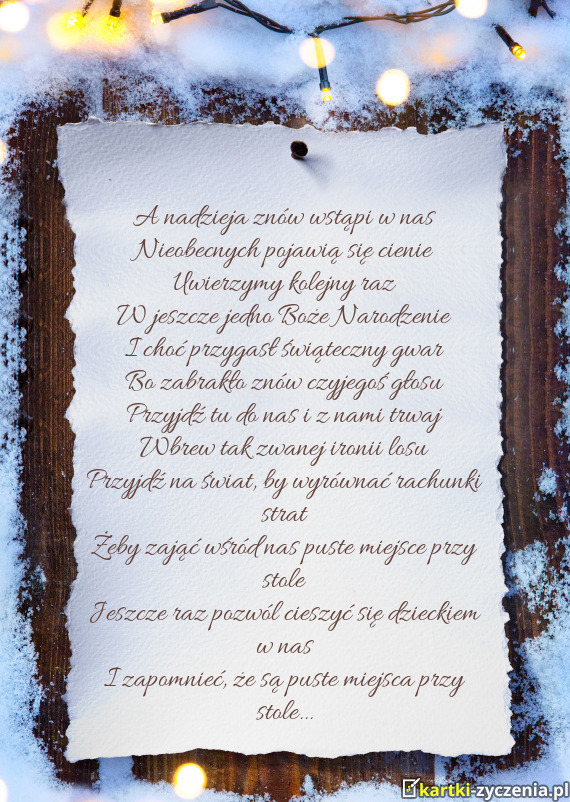 A nadzieja znów wstąpi w nas
Nieobecnych pojawią się cienie
Uwierzymy kolejny raz
W jeszcze jedno Boże Narodzenie
I choć przygasł świąteczny gwar
Bo zabrakło znów czyjegoś głosu
Przyjdź tu do nas i z nami trwaj
Wbrew tak zwanej ironii losu
Przyjdź na świat, by wyrównać rachunki
strat
Żeby zająć wśród nas puste miejsce przy
stole
Jeszcze raz pozwól cieszyć się dzieckiem
w nas
I zapomnieć, że są puste miejsca przy
stole...
kartki-zyczenia.pl